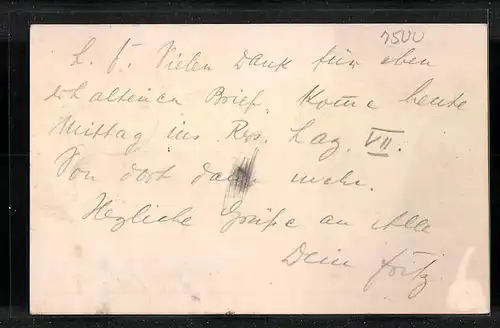 7500
L. F. Vielen Dank für eben
erhaltenen Brief. Komme heute
Mittag ins Res. Laz. VII.
Von dort dann mehr.
Herzliche Grüße an Alle
Dein Fritz